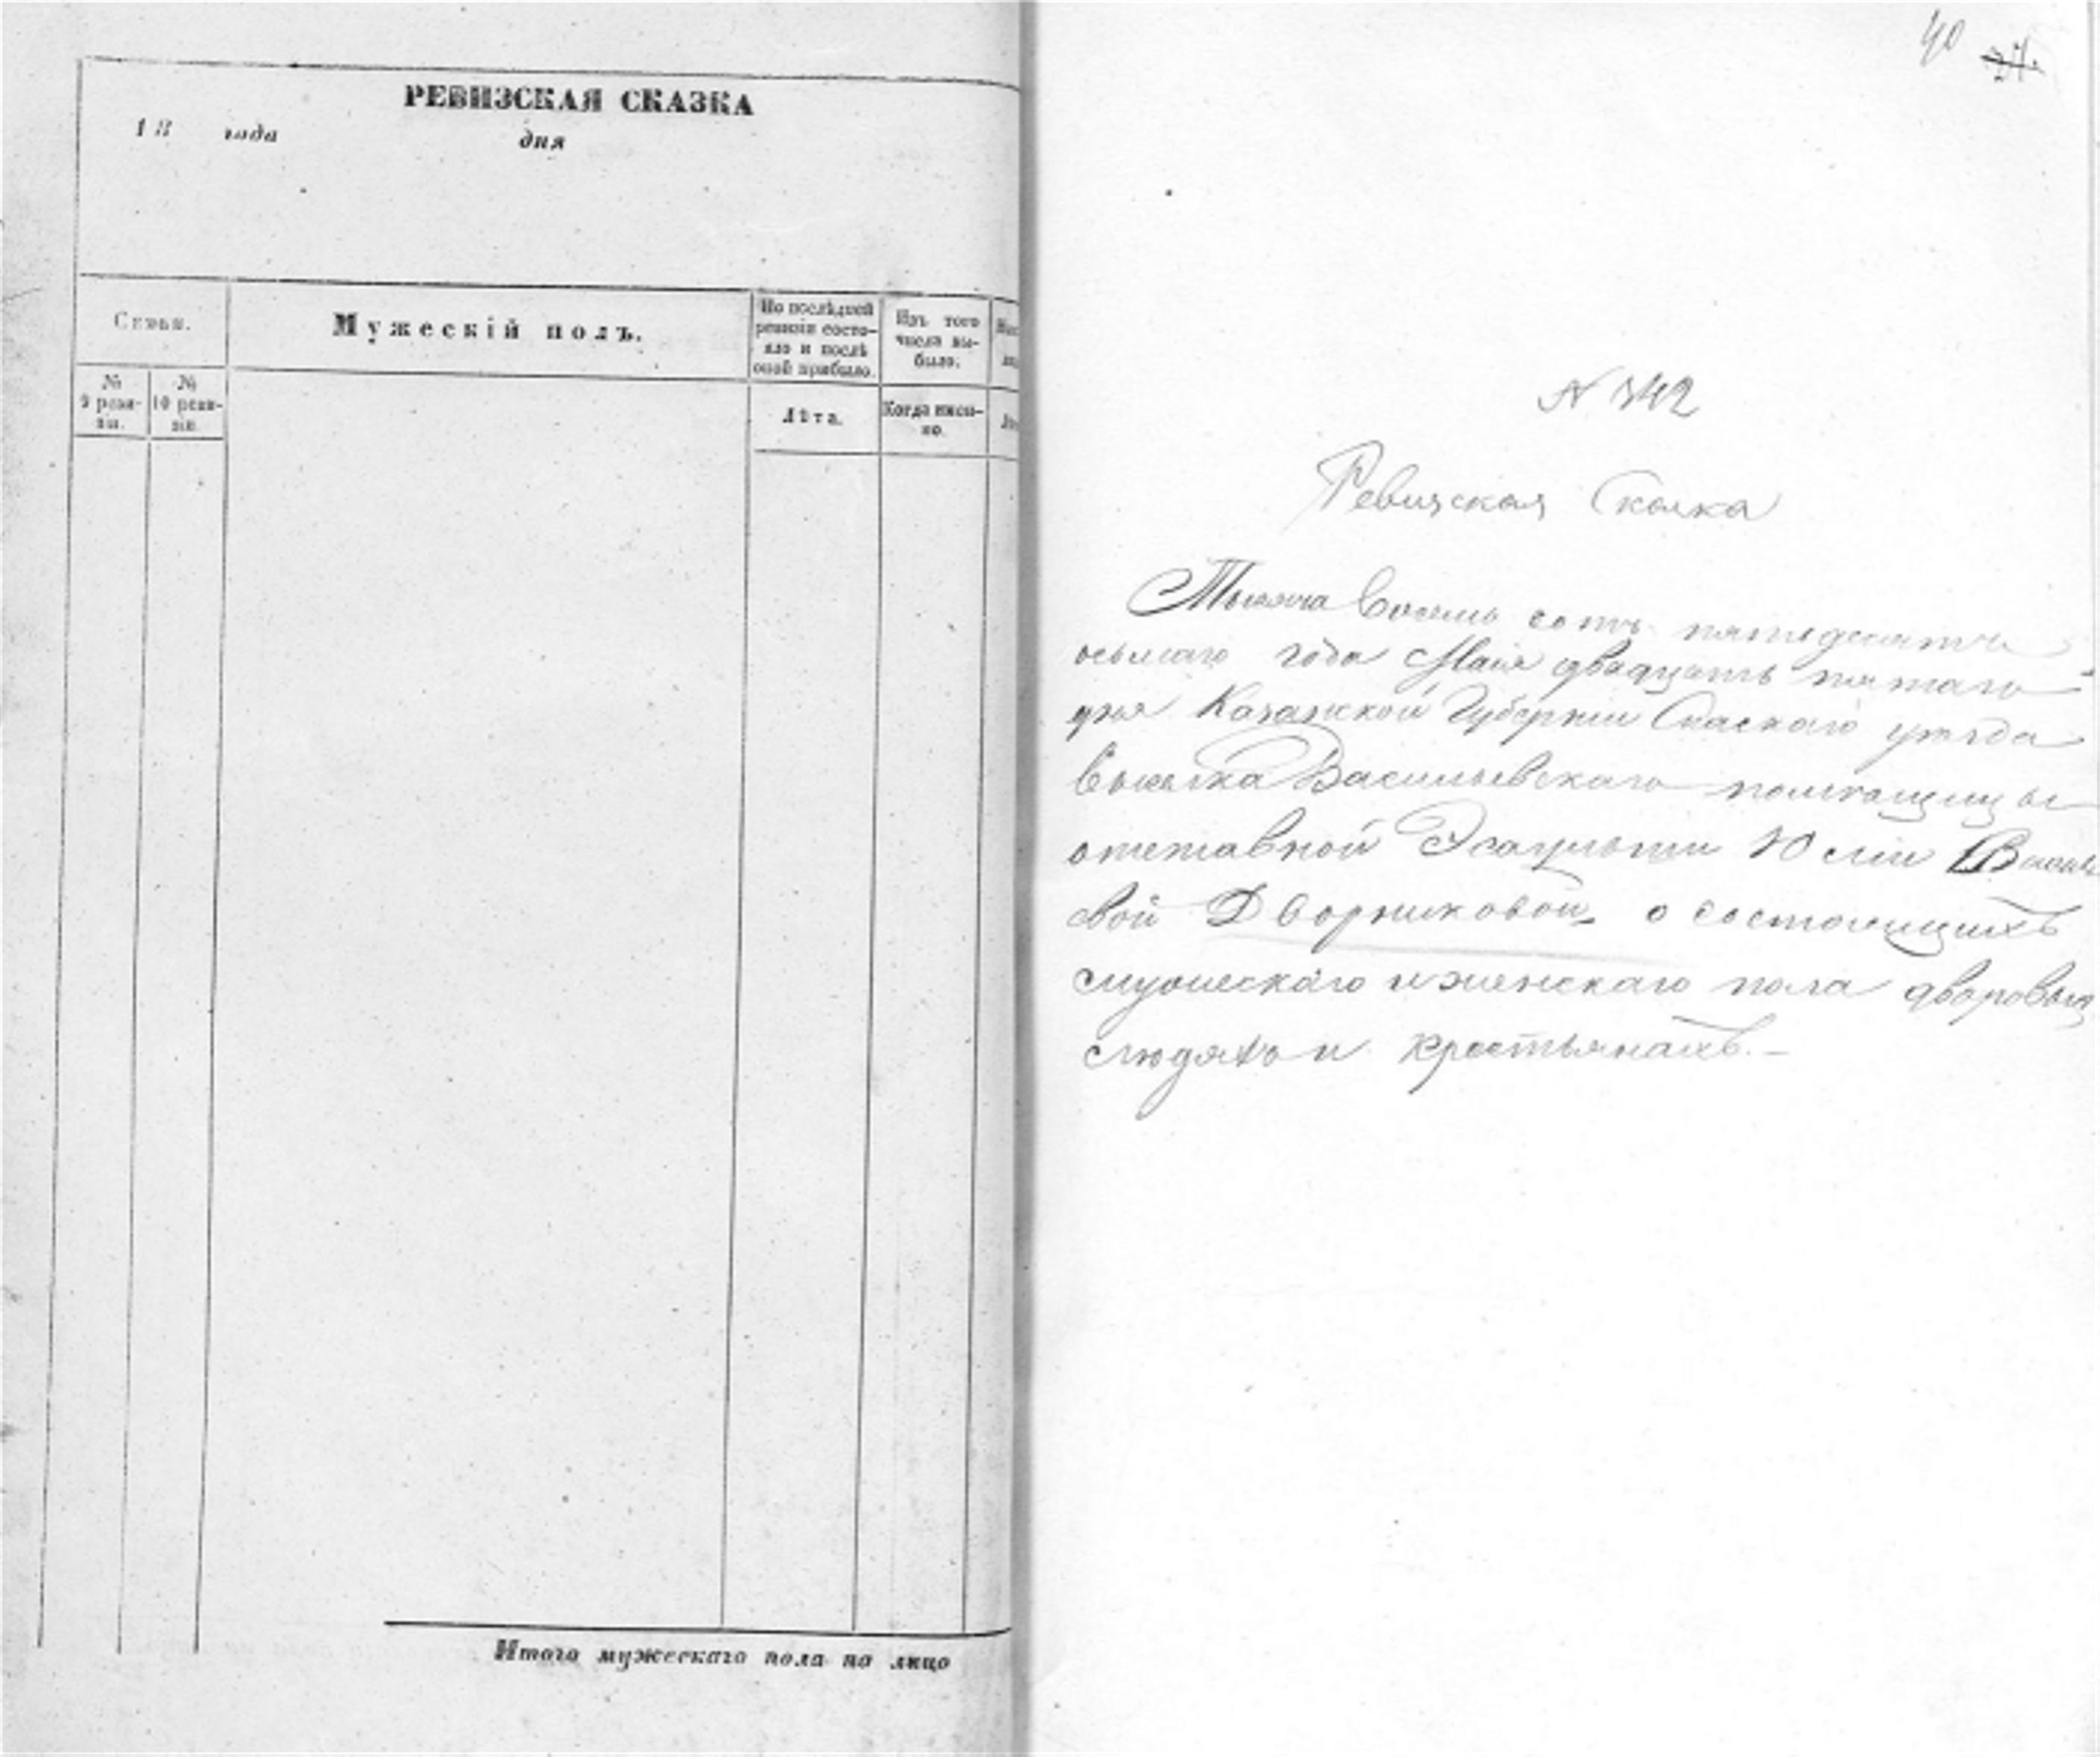 РЕВИЗСКАЯ СКАЗКА
18 года дня
Семьи.
Мужескій полъ.
По послѣдней
ревизіи состо-
яло и послѣ
оной прибыло.
Изъ того
числа вы-
было.
№
9 реви-
зіи.
№
10 реви-
зіи.
Лѣта.
Когда имен-
но.
Итого мужескаго пола на лицо
40
N 342
Ревизская Сказка
Тысяча восемь сотъ пятьдесятъ
осьмаго года Маія двадцать пятаго
дня Казанской Губерніи Спаскаго уѣзда
Выселка Васильевскаго помѣщицы
отставной Эсаульши Юліи
вой Дворниковой о состоящихъ
мужескаго и женскаго пола дворовыхъ
людяхъ и крестьянахъ.-